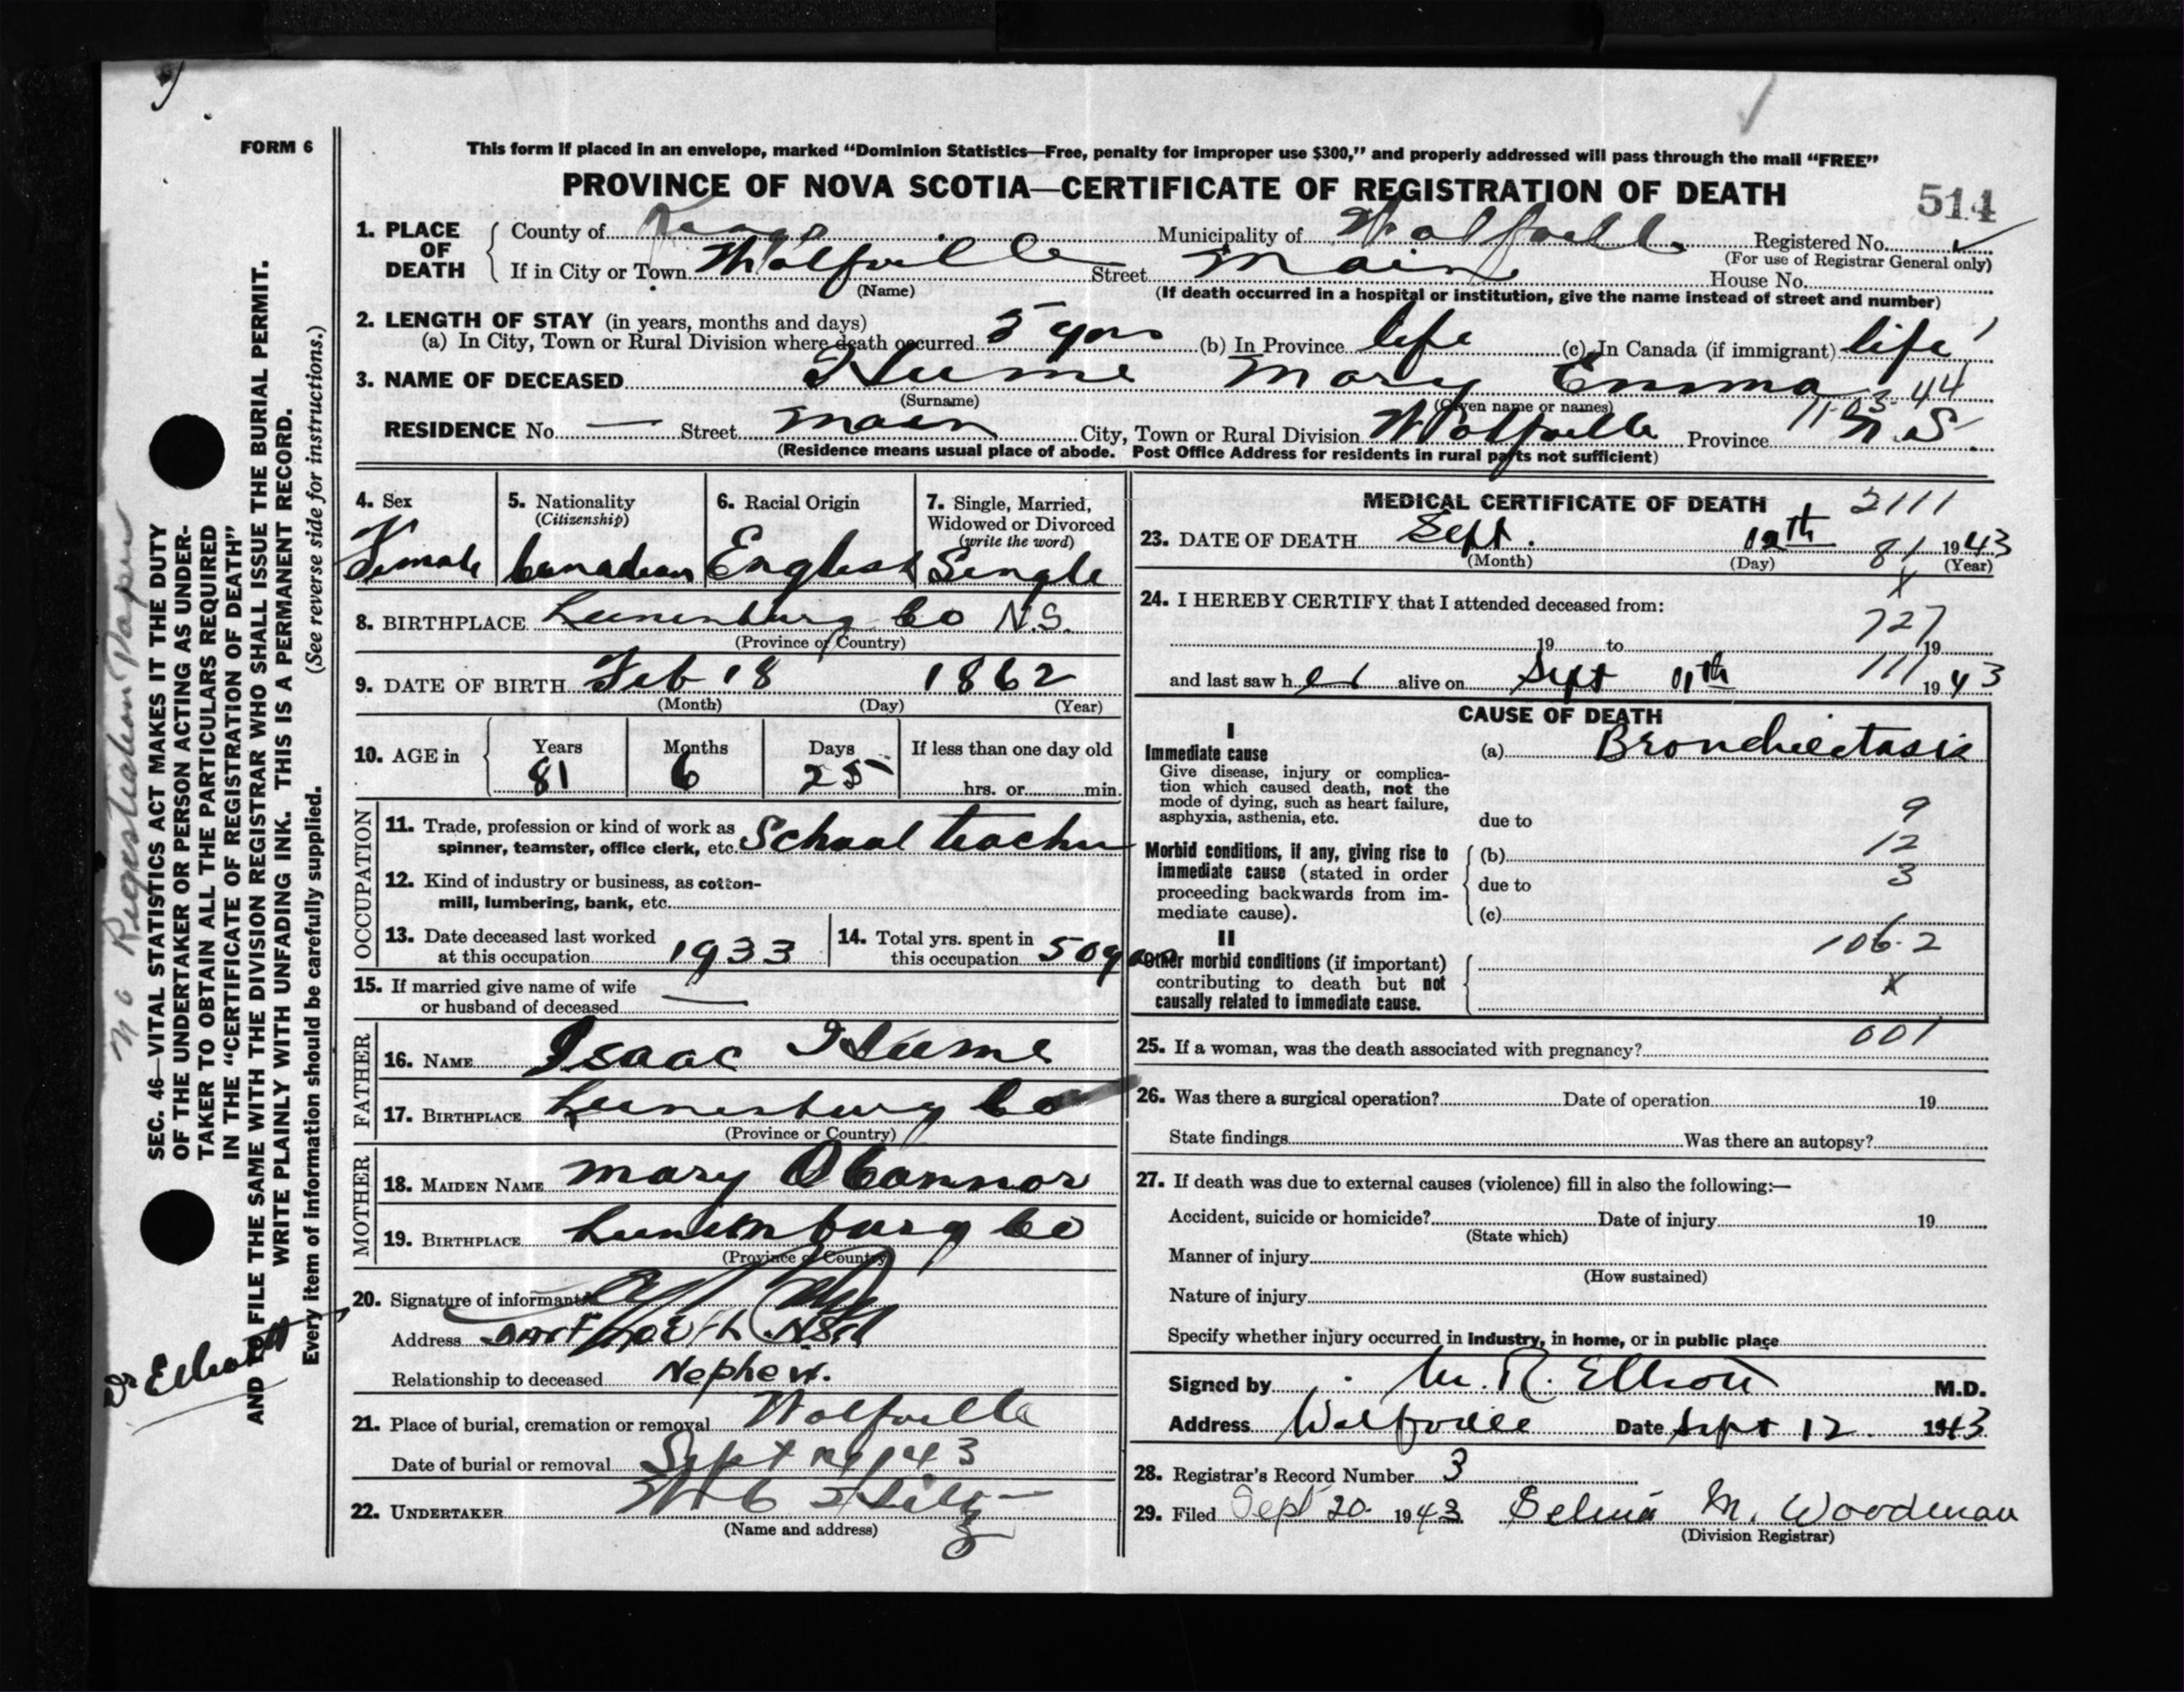 FORM 6
This form if placed in an envelope, marked “Dominion Statistics—Free, penalty for improper use $300,” and properly addressed will pass through the mail “FREE”
PROVINCE OF NOVA SCOTIA—CERTIFICATE OF REGISTRATION OF DEATH
514
1. PLACE OF DEATH
County of Kings Municipality of Wolfville Registered No.
(For use of Registrar General only)
If in City or Town Wolfville Street Main House No.
(Name)
(If death occurred in a hospital or institution, give the name instead of street and number)
2. LENGTH OF STAY (in years, months and days)
(a) In City, Town or Rural Division where death occurred 5 yrs (b) In Province life (c) In Canada (if immigrant) life
3. NAME OF DECEASED Hume Mary Emma
(Surname) (Given name or names) 11-03-44
RESIDENCE No. — Street Main City, Town or Rural Division Wolfville Province N.S.
(Residence means usual place of abode. Post Office Address for residents in rural parts not sufficient)
4. Sex
Female
5. Nationality
(Citizenship)
Canadian
6. Racial Origin
English
7. Single, Married,
Widowed or Divorced
(write the word)
Single
8. BIRTHPLACE Lunenburg Co N.S.
(Province or Country)
9. DATE OF BIRTH Feb 18 1862
(Month) (Day) (Year)
10. AGE in
Years Months Days If less than one day old
81 6 25 hrs. or min.
OCCUPATION
11. Trade, profession or kind of work as
spinner, teamster, office clerk, etc. School teacher
12. Kind of industry or business, as cotton-
mill, lumbering, bank, etc.
13. Date deceased last worked
at this occupation 1933
14. Total yrs. spent in
this occupation 50 years
15. If married give name of wife
or husband of deceased —
FATHER
16. NAME Isaac Hume
17. BIRTHPLACE Lunenburg Co
(Province or Country)
MOTHER
18. MAIDEN NAME Mary O Connor
19. BIRTHPLACE Lunenburg Co
(Province or Country)
20. Signature of informant
Address
Relationship to deceased Nephew.
21. Place of burial, cremation or removal Wolfville
Date of burial or removal Sept 43
22. UNDERTAKER
(Name and address)
MEDICAL CERTIFICATE OF DEATH 2111
23. DATE OF DEATH Sept. 12th 1943
(Month) (Day) 81 (Year)
X
24. I HEREBY CERTIFY that I attended deceased from:
727
19 to 19
and last saw her alive on Sept 11th 111 1943
CAUSE OF DEATH
I
Immediate cause (a) Bronchiectasis
Give disease, injury or complica-
tion which caused death, not the
mode of dying, such as heart failure,
asphyxia, asthenia, etc. due to 9
12
Morbid conditions, if any, giving rise to (b)
immediate cause (stated in order
proceeding backwards from im- due to 3
mediate cause). (c)
II
106.2
Other morbid conditions (if important)
contributing to death but not X
causally related to immediate cause.
001
25. If a woman, was the death associated with pregnancy?
26. Was there a surgical operation? Date of operation 19
State findings Was there an autopsy?
27. If death was due to external causes (violence) fill in also the following:—
Accident, suicide or homicide? Date of injury 19
(State which)
Manner of injury
(How sustained)
Nature of injury
Specify whether injury occurred in industry, in home, or in public place
Signed by M. R. Elliott M.D.
Address Wolfville Date Sept 12. 1943
28. Registrar's Record Number 3
29. Filed Sept 20 1943 Selina M. Woodman
(Division Registrar)
SEC. 46—VITAL STATISTICS ACT MAKES IT THE DUTY
OF THE UNDERTAKER OR PERSON ACTING AS UNDER-
TAKER TO OBTAIN ALL THE PARTICULARS REQUIRED
IN THE “CERTIFICATE OF REGISTRATION OF DEATH”
AND TO FILE THE SAME WITH THE DIVISION REGISTRAR WHO SHALL ISSUE THE BURIAL PERMIT.
WRITE PLAINLY WITH UNFADING INK. THIS IS A PERMANENT RECORD.
Every item of information should be carefully supplied. (See reverse side for instructions.)
No Registration Paper
Dr Elliott